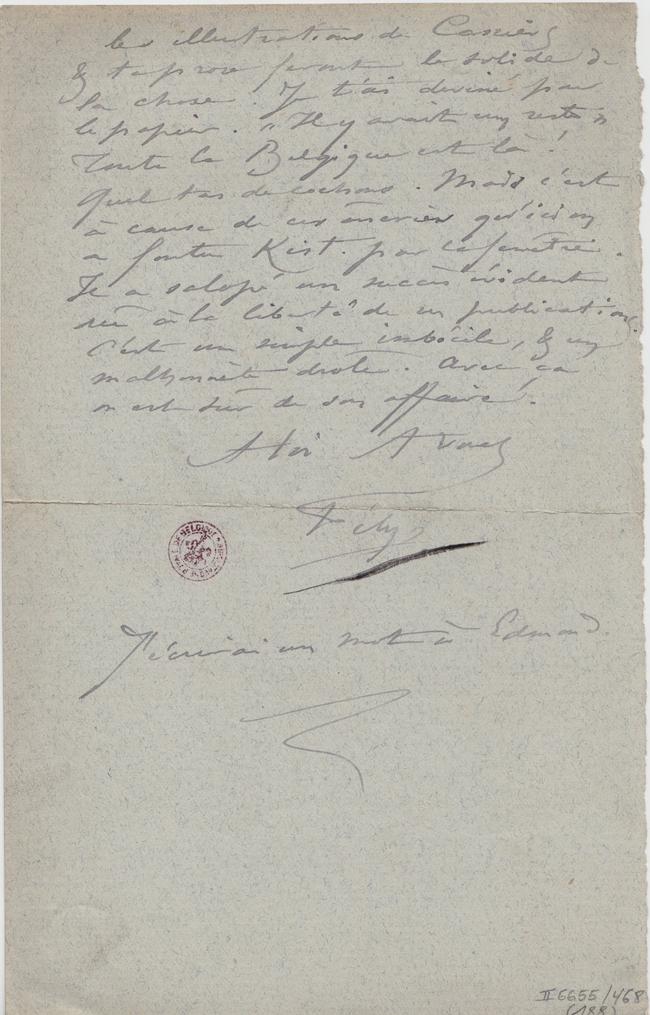 les illustrations de Cassiers
& ta prose feront le solide de
la chose. Je t'ai deviné par
le papier. "Il y avait un reste"
Toute la Belgique est là !
Quel tas de cochons. Mais c'est
à cause de ces âneries qu'ici on
a foutu Kist. par la fenêtre.
Il a salopé un succès évident
dû à la liberté de ses publications.
C'est un simple imbécile, & un
malhonnête drôle. Avec ça
on est sûr de son affaire.
A toi
Fély
J'écrirai un mot à Edmond.
II 6655/468
(188)